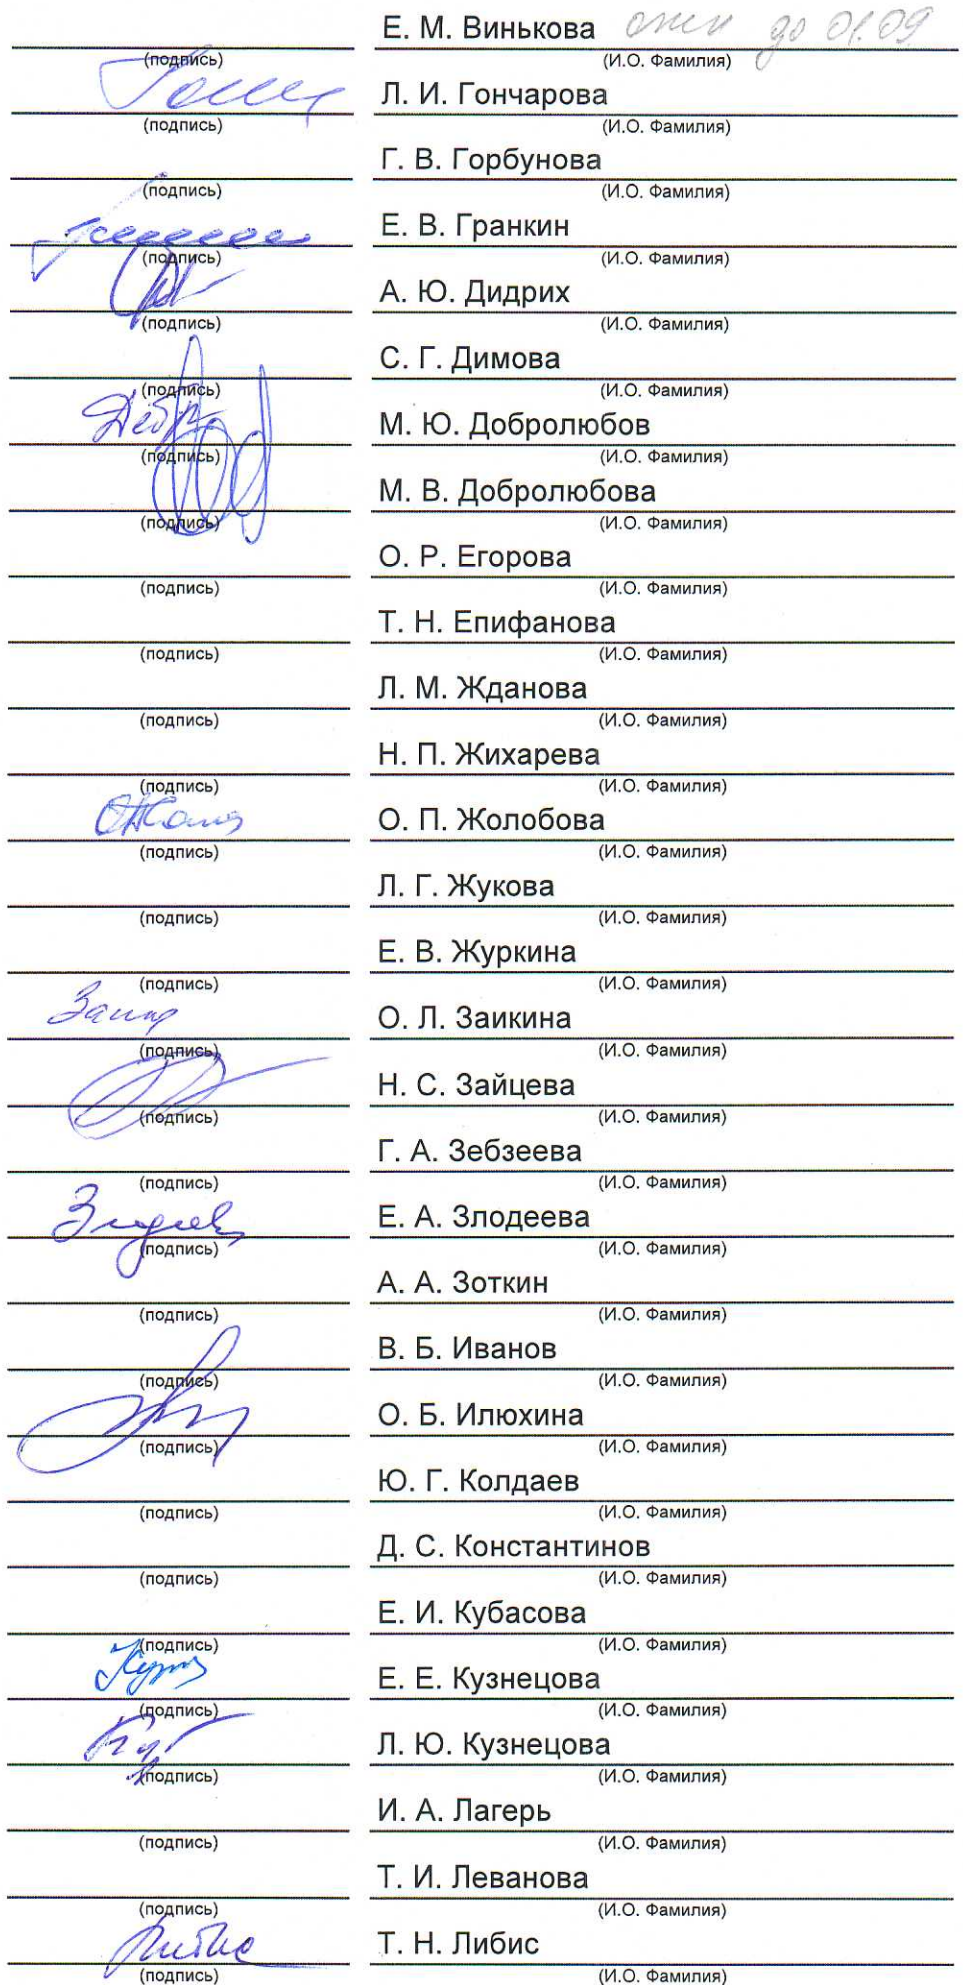 Е. М. Винькова до 01.09
(подпись) (И.О. Фамилия)
Л. И. Гончарова
(подпись) (И.О. Фамилия)
Г. В. Горбунова
(подпись) (И.О. Фамилия)
Е. В. Гранкин
(подпись) (И.О. Фамилия)
А. Ю. Дидрих
(подпись) (И.О. Фамилия)
С. Г. Димова
(подпись) (И.О. Фамилия)
М. Ю. Добролюбов
(подпись) (И.О. Фамилия)
М. В. Добролюбова
(подпись) (И.О. Фамилия)
О. Р. Егорова
(подпись) (И.О. Фамилия)
Т. Н. Епифанова
(подпись) (И.О. Фамилия)
Л. М. Жданова
(подпись) (И.О. Фамилия)
Н. П. Жихарева
(подпись) (И.О. Фамилия)
О. П. Жолобова
(подпись) (И.О. Фамилия)
Л. Г. Жукова
(подпись) (И.О. Фамилия)
Е. В. Журкина
(подпись) (И.О. Фамилия)
О. Л. Заикина
(подпись) (И.О. Фамилия)
Н. С. Зайцева
(подпись) (И.О. Фамилия)
Г. А. Зебзеева
(подпись) (И.О. Фамилия)
Е. А. Злодеева
(подпись) (И.О. Фамилия)
А. А. Зоткин
(подпись) (И.О. Фамилия)
В. Б. Иванов
(подпись) (И.О. Фамилия)
О. Б. Илюхина
(подпись) (И.О. Фамилия)
Ю. Г. Колдаев
(подпись) (И.О. Фамилия)
Д. С. Константинов
(подпись) (И.О. Фамилия)
Е. И. Кубасова
(подпись) (И.О. Фамилия)
Е. Е. Кузнецова
(подпись) (И.О. Фамилия)
Л. Ю. Кузнецова
(подпись) (И.О. Фамилия)
И. А. Лагерь
(подпись) (И.О. Фамилия)
Т. И. Леванова
(подпись) (И.О. Фамилия)
Либис Т. Н. Либис
(подпись) (И.О. Фамилия)